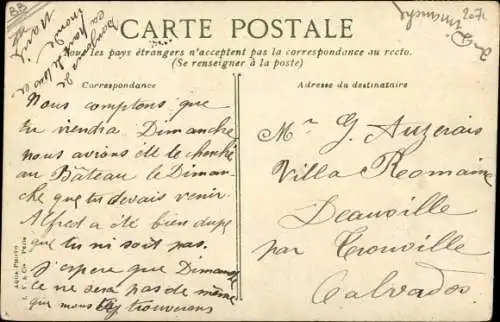 CARTE POSTALE
Tous les pays étrangers n'acceptent pas la correspondance au recto.
(Se renseigner à la poste)
Correspondance
Adresse du destinataire
Nous comptons que
tu viendra Dimanche
nous avions été te cherché
au Bâteau le Diman-
che que tu devais venir.
Alfred a été bien dupe
que tu ni soit pas.
J'espere que Dimanche
ce ne sera pas de même
que nous t'y trouverons
Mr G. Auzerais
Villa Romaine
Deauville
par Trouville
Calvados
2071
Dimanche
Bonjour de
tout le
monde